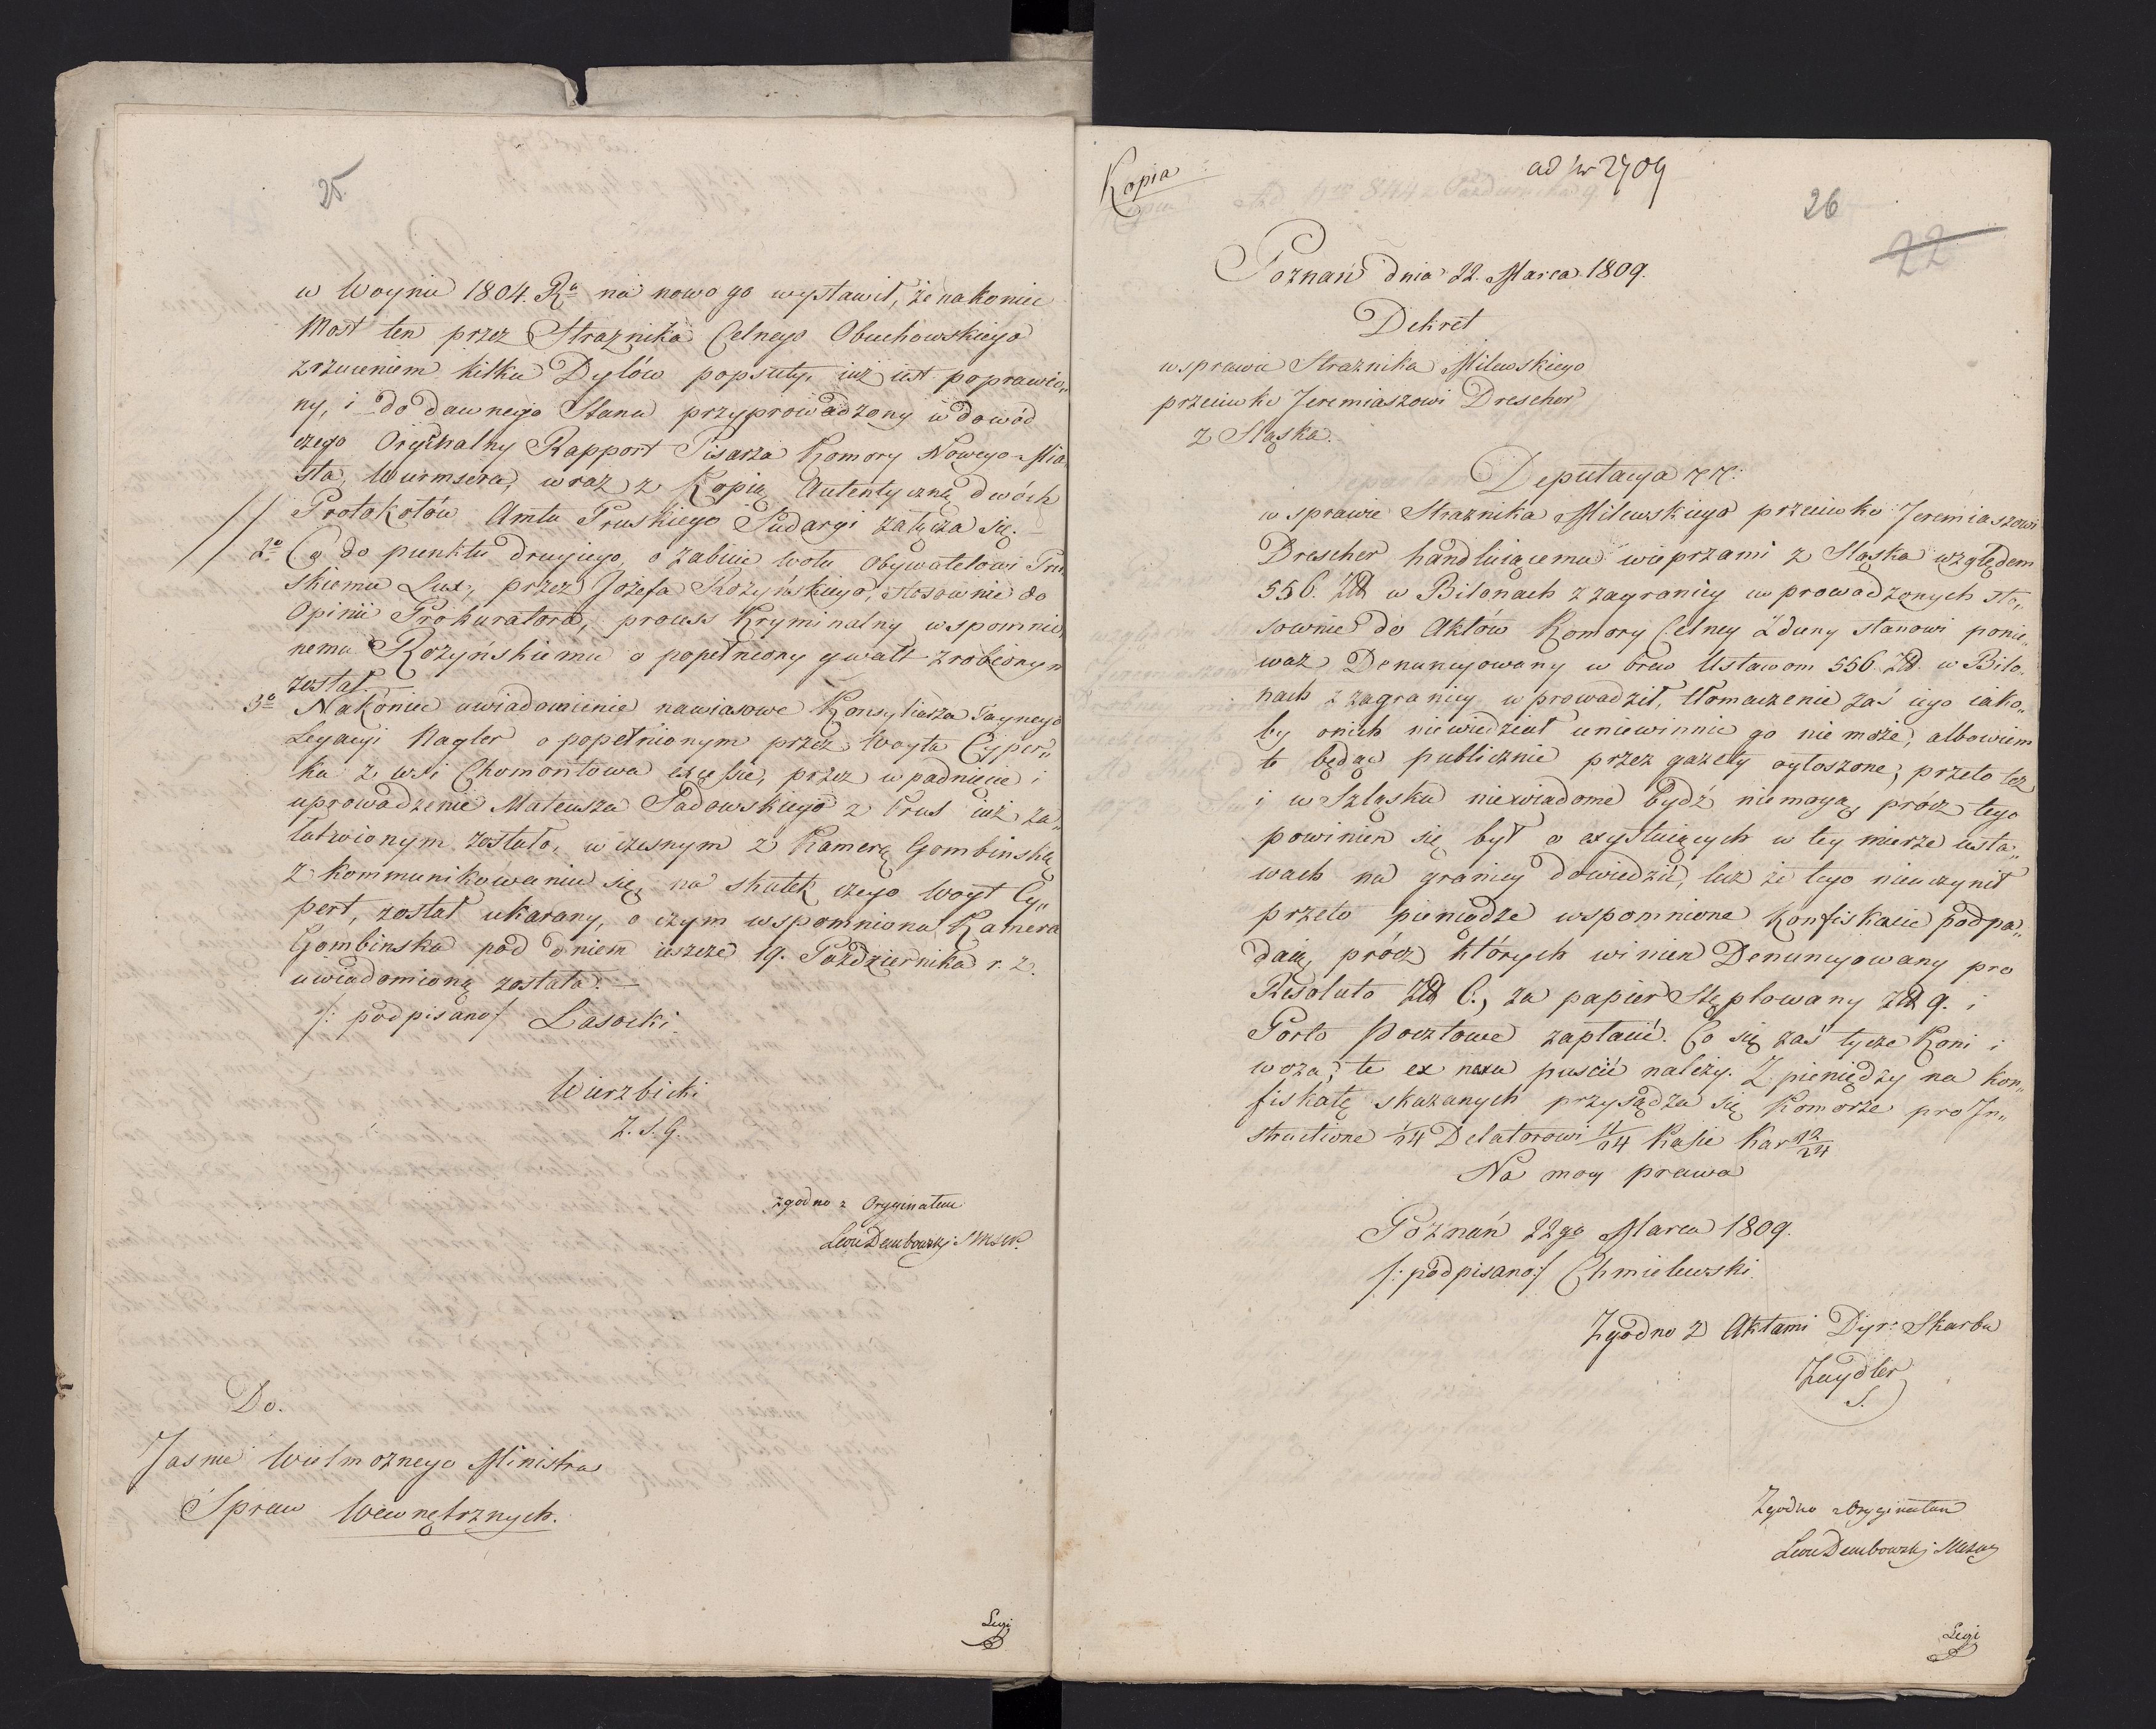 25.
w Woynie 1804. Ra na nowo go wystawił, że nakoniec
Most ten przez Strażnika Celnego Obuchowskiego
zrzuceniem kilku Dylów popsuty, iuż iest poprawio„
ny, i do dawnego Stanu przyprowadzony w dowód
czego Oryginalny Rapport Pisarza Komory Nowego-Mia„
sta, Wurmsera, wraz z Kopią Autentyczną dwóch
// Protokołów Amtu Pruskiego Pudargi załącza się. —
2o Co do punktu drugiego, o zabicie wołu Obywatelowi Pru„
skiemu Lux, przez Jozefa Rożyńskiego, stosownie do
Opinii Prokuratora, process Kryminalny wspomnio„
nemu Rożyńskiemu o popełniony gwałt zrobionym
został.
3o Nakoniec uwiadomienie nawiasowe Konsyliarza Taynego
Legacyi Nagler o popełnionym przez Woyta Cyper„
ta z wsi Chomontowa excessie, przez wpadnięcie i
uprowadzenie Mateusza Sadowskiego z Prus iuż za„
łatwionym zostało, wczesnym z Kamerą Gombinską
zkommunikowaniu się, na skutek czego Woyt Cy„
pert, został ukarany, o czym wspomniona Kamera
Gombinska pod dniem ieszcze 19. Pażdziernika r. z.
uwiadomioną została. —
/: podpisano/ Lasocki.
Wierzbicki
Z. S. G.
zgodno z Oryginałem
Leon Dembowski
Do.
Jasnie Wielmożnego Ministra
Spraw Wewnętrznych.
Legi
Kopia
ad Nr 2709
26
22
Poznań dnia 22. Marca 1809.
Dekret
w sprawie Strażnika Milewskiego
przeciwko Jeremiaszowi Drescher
z Sląska.
Deputacya
w sprawie Strażnika Milewskiego przeciwko Jeremiaszowi
Drescher handluiącemu wieprzami z Sląska względem
556. Zł w Bilonach z zagranicy wprowadzonych sto„
sownie do Aktów Komory Celney Zduny stanowi ponie„
waż Denuncyowany wbrew Ustawom 556. Zł. w Bilo„
nach z zagranicy wprowadził, tłomaczenie zaś iego iako„
by onich niewiedział uniewinnić go nie może, albowiem
te będąc publicznie przez gazety ogłoszone; przeto też
i w Szląsku niewiadome bydź niemogą, prócz tego
powinien się był o exystuiących w tey mierze usta„
wach na granicy dowiedzić, lecz że tego nieuczynił
przeto pieniądze wspomnione Konfiskacie podpa„
daią, prócz których winien Denuncyowany pro
Resoluto Zł 6., za papier Stęplowany Zł 9. i
Porto Pocztowe zapłacić. Co się zaś tycze Koni i
woza; te ex nexu puscić należy. Z pieniędzy na kon„
fiskatę skazanych przysądza się Komorze pro In„
structione 1/24 Delatorowi 11/24 Kassie Kar 12/24
Na mocy prawa
Poznań 22go Marca 1809.
/: podpisano:/ Chmielewski.
Zgodno z Aktami Dyr: Skarbu
Zaydler
S.
Zgodno z Oryginałem
Leon Dembowski
Legi